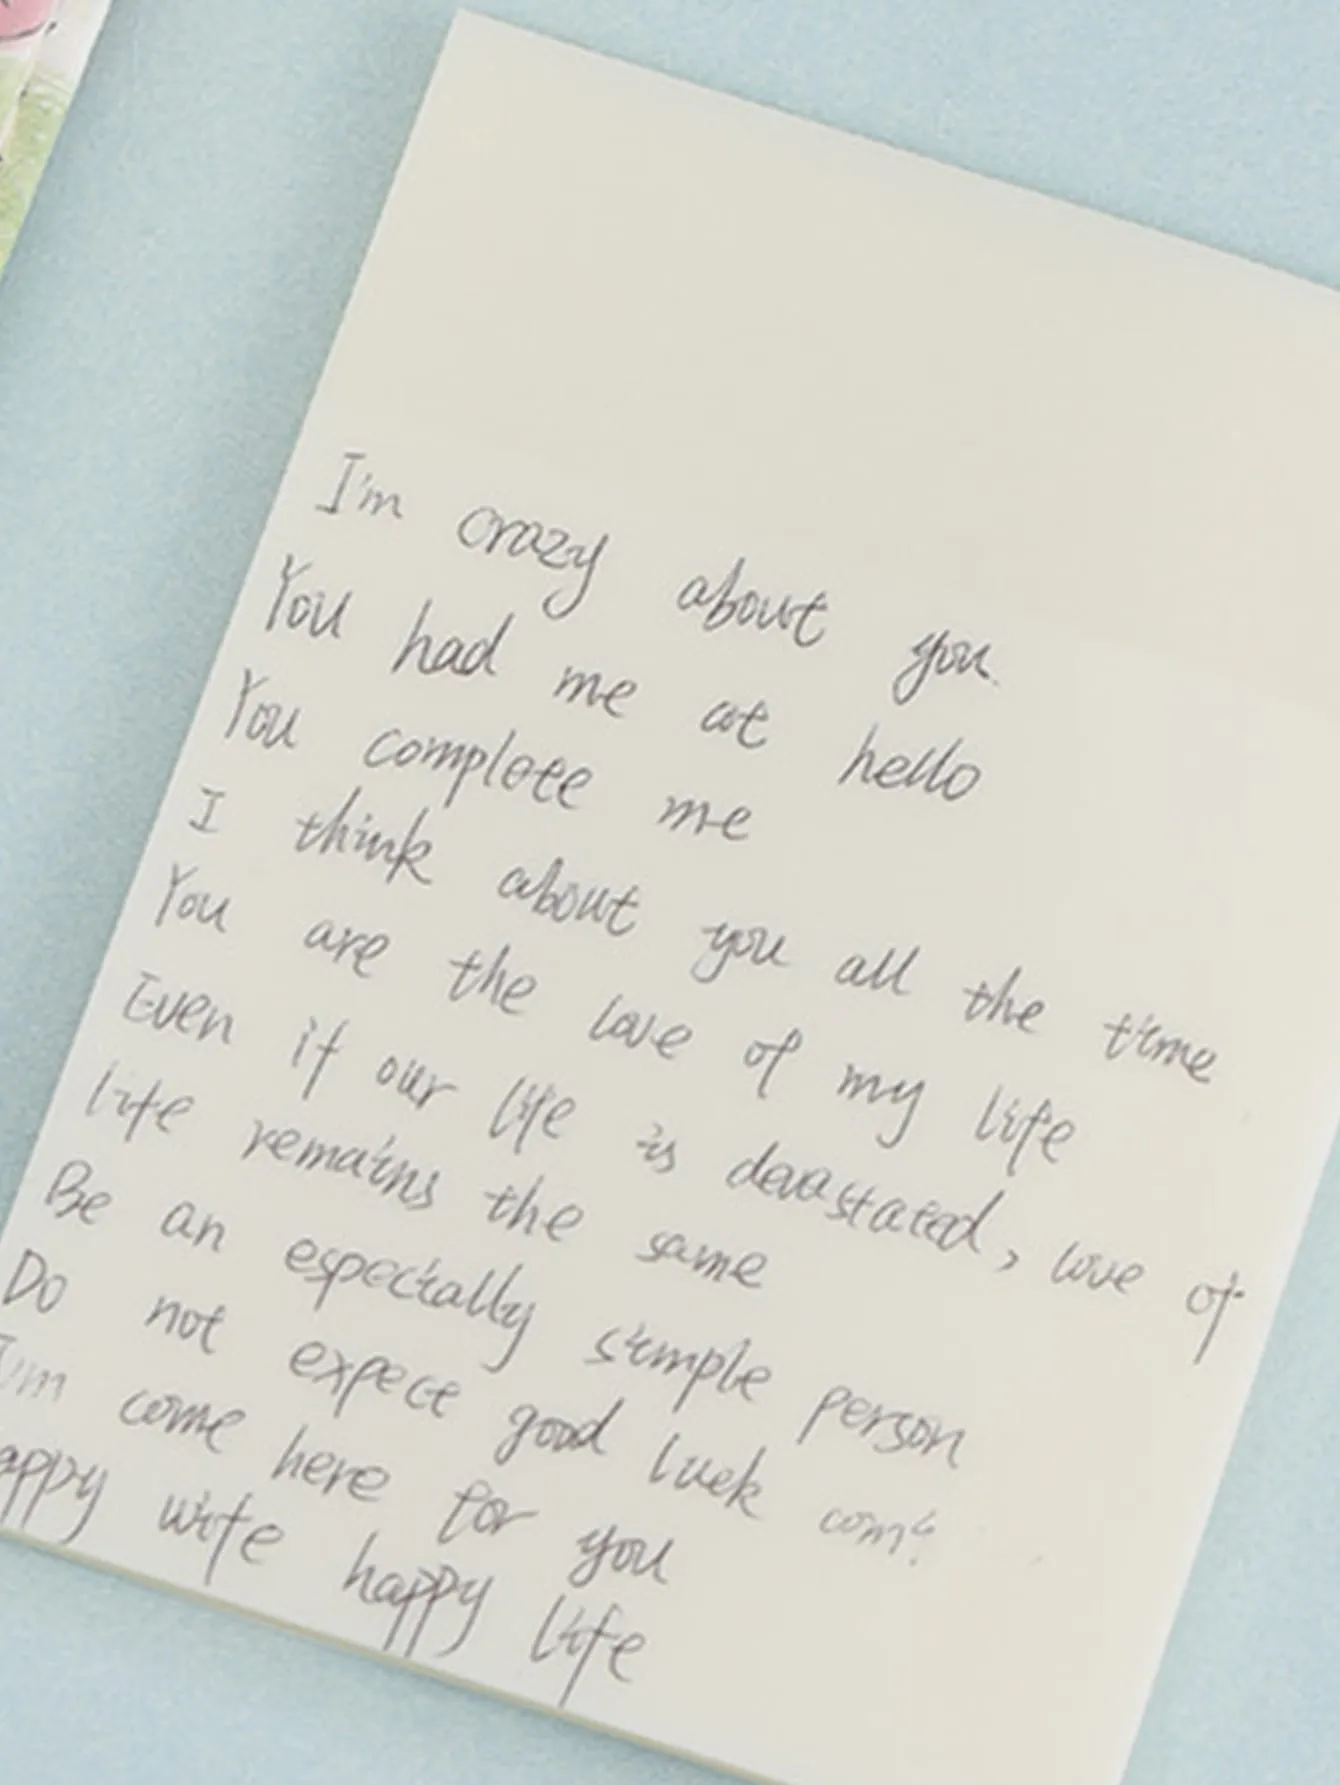 I'm crazy about you.
You had me at hello
You complete me
I think about you all the time
You are the love of my life
Even if our life is devastated, love of
life remains the same
Be an especially simple person
Do not expect good luck
come here for you
appy wife happy life